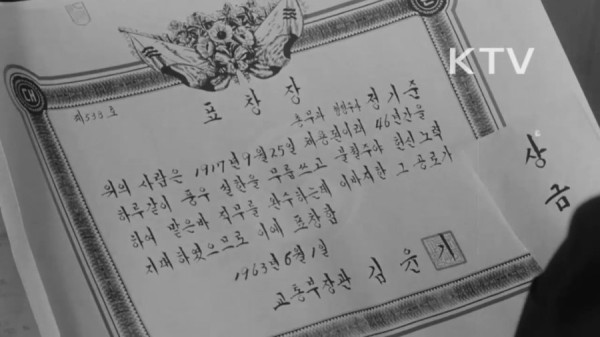 KTV
제533호
표창장
정기준
위의 사람은 1917년 9월 25일 채용된이래 46년간을
하루같이 풍우 설한을 무릅쓰고 불철주야 헌신 노력
하여 맡은바 직무를 완수하는데 이바지한 그 공로가
지대 하였으므로 이에 표창함
1963년 6월 1일
교통부장관 김윤기
상
금